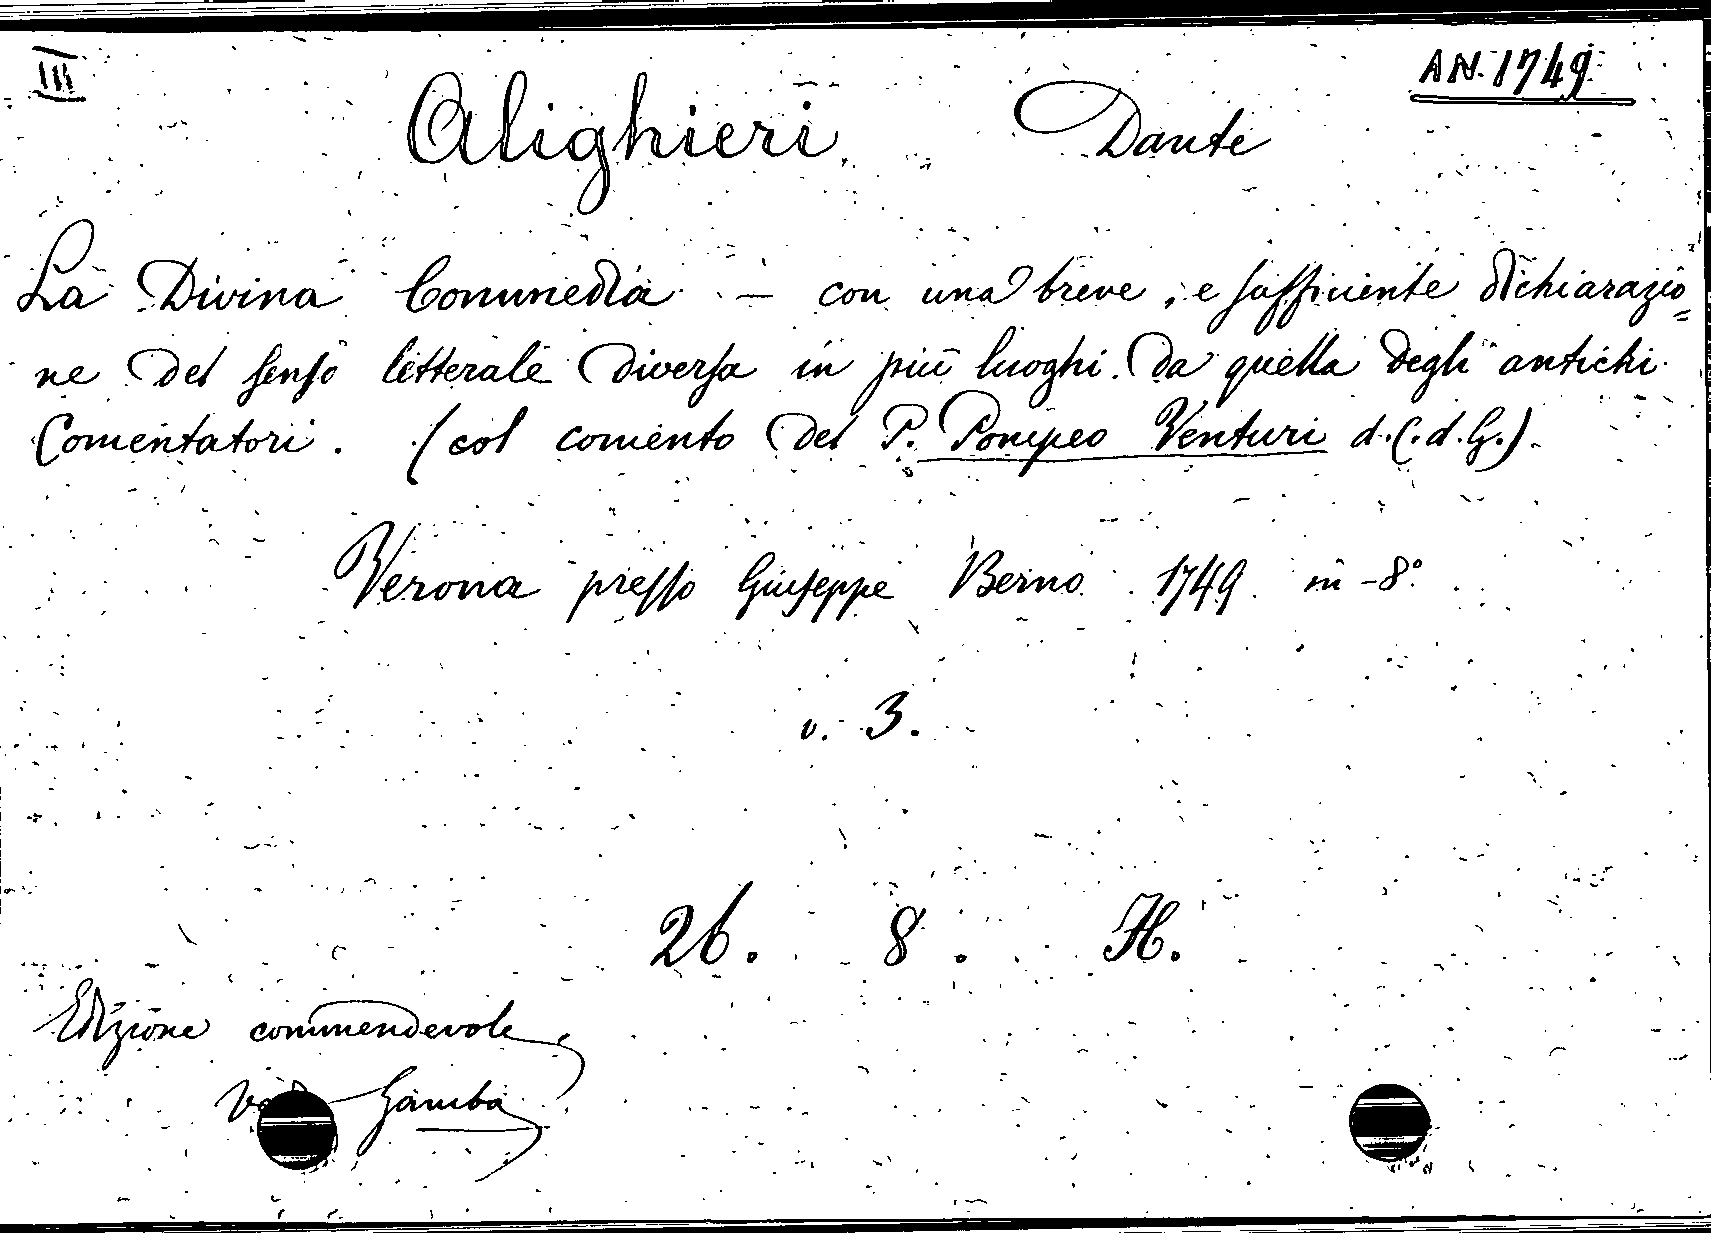 III
AN. 1749
Alighieri Dante
La Divina Commedia – con una breve, e sufficiente dichiarazio=
ne del senso letterale diversa in più luoghi da quella degli antichi
Comentatori. (col comento del P. Pompeo Venturi d. C. d. G.)
Verona presso Giuseppe Berno 1749 in-8°
v. 3.
26. 8. H.
Edizione commendevole
Gamba